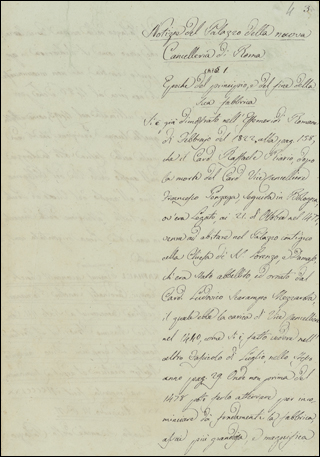 Notizie del Palazzo della nuova
Cancelleria di Roma
Epoche del principio, e del fine della
sua fabbrica
Si è già dimostrato nell'Effemeridi Romane
di Febbrajo del 1822 alla pag. 158,
che il Card. Raffaele Riario, dopo
la morte del Card. Vicecancelliere
Francesco Gonzaga seguita in Bologna,
ov'era Legato, ai 21. di
venne ad abitare nel Palazzo contiguo
alla Chiesa di S. Lorenzo in Damaso,
ch'era stato abbellito, ed ornato dal
Card. Ludovico Scarampo Mezzarota,
il quale ebbe la carica di Vice Cancelliere
nel 1440, come si è fatto vedere nell'
altro Capitolo di Luglio, nello stesso
anno pag. 29. Onde non prima del
1478 potè farlo atterrare per inco
minciare dai fondamenti la fabbrica
assai più grandiosa, e magnifica